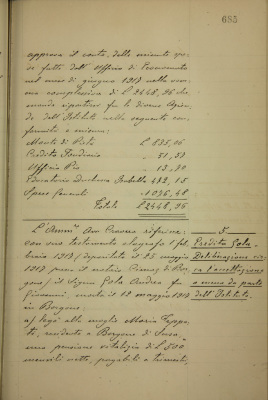 685
approva il conto delle minute spe-
se fatte dall'Ufficio di Economato
nel mese di giugno 1919 nella som-
ma complessiva di £ 2448,96 che
manda ripartire fra le diverse Azien-
de dell'Istituto nelle seguenti con-
formità e misura:
Monte di Pietà £ 835,06
Credito Fondiario
Ufficio Pio
Esecutorio Duchessa Isabella
Spese Generali 1036,48
Totale £ 2448,96
L'Amm.re Avv. Cravero riferisce:
con suo testamento olografo 1 feb-
braio 1919 (depositato il 25 maggio
1919 presso il notaio di Bor-
gone) il Signor Gola Andrea fu
Giovanni, morto il 11 maggio 1919
in Borgone:
a) legò alla moglie Maria
residente a Borgone di Susa,
una pensione vitalizia di £ 500
mensili nette, pagabili a trimestri,
5
Eredità Gola -
Deliberazione cir-
ca l'accettazione
o meno da parte
dell'Istituto.